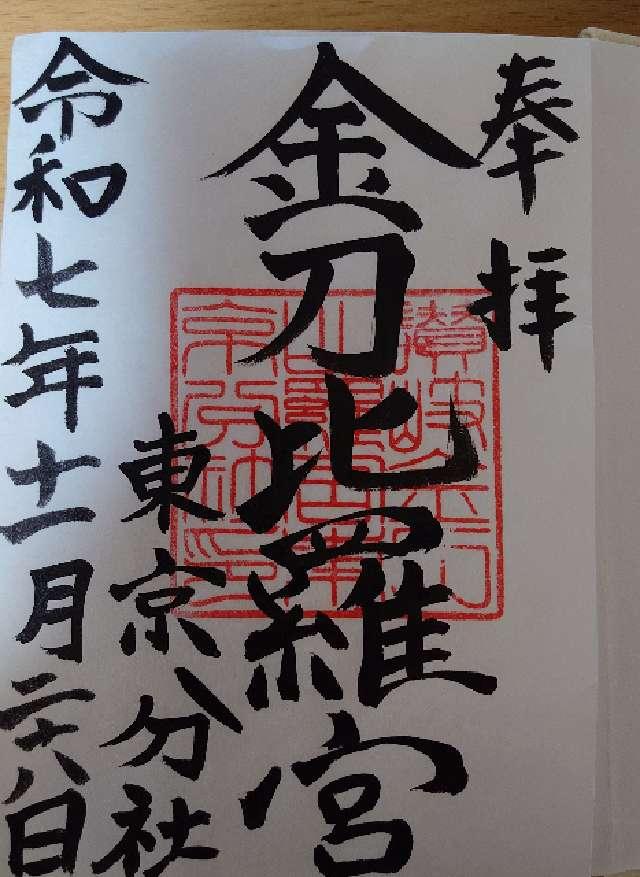 奉拝
金刀比羅宮
東京分社
令和七年十一月二十八日